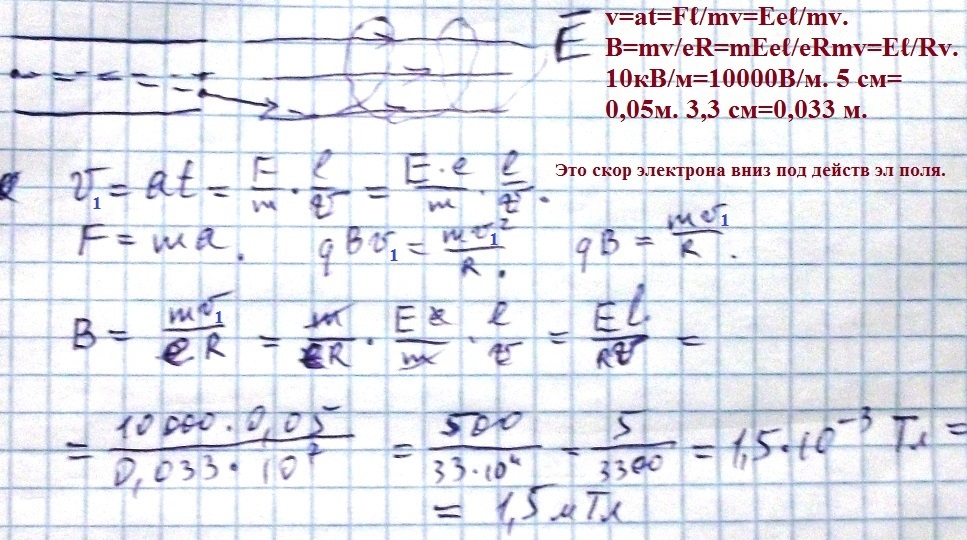 E
v=at=Fℓ/mv=Eeℓ/mv.
B=mv/eR=mEeℓ/eRmv=Eℓ/Rv.
10кВ/м=10000В/м. 5 см=
0,05м. 3,3 см=0,033 м.
Это скор электрона вниз под действ эл поля.
v₁ = at = F/m · ℓ/v = E·e/m · ℓ/v.
F = ma. qBv₁ = mv₁²/R. qB = mv₁/R.
B = mv₁/eR = m/eR · Ee/m · ℓ/v = Eℓ/Rv =
= 10000·0,05/0,033·10⁷ = 500/33·10⁴ = 5/3300 = 1,5·10⁻³ Тл =
= 1,5 мТл